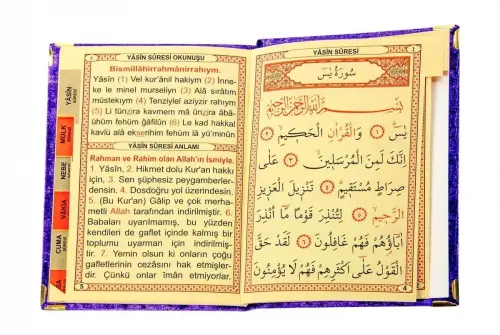 YÂSÎN SÛRESİ OKUNUŞU
Bismillâhirrahmânirrahıym.
Yâsîn (1) Vel kur'ânil hakiym (2) İnne-
ke le minel murseliyn (3) Alâ sırâtım
müstekıym (4) Tenziylel aziyzir rahıym
(5) Li tünzira kavmem mâ ünzira âbâ-
ühüm fehüm ğâfilûn (6) Le kad hakkal
kavlü alâ ekserihim fehüm lâ yü'minûn
YÂSÎN SÛRESİ ANLAMI
Rahman ve Rahim olan Allah'ın İsmiyle.
1. Yâsîn, 2. Hikmet dolu Kur'an hakkı
için, 3. Sen şüphesiz peygamberler-
densin. 4. Dosdoğru yol üzerindesin.
5. (Bu Kur'an) Gâlip ve çok merha-
metli Allah tarafından indirilmiştir. 6.
Babaları uyarılmamış, bu yüzden
kendileri de gaflet içinde kalmış bir
toplumu uyarman için indirilmiş-
tir. 7. Yemin olsun ki onların çoğu
gafletlerinin cezasını hak etmişler-
dir. Çünkü onlar îmân etmiyorlar.
5
YÂSÎN
SÛRESİ
MÜLK
NEBE
VÂKIA
CUMA
YÂSÎN SÛRESİ
سُورَةُ يٰسٓ
بِسْمِ اللّٰهِ الرَّحْمٰنِ الرَّحِيمِ
يٰسٓ ﴿١﴾ وَالْقُرْاٰنِ الْحَكِيمِ ﴿٢﴾
اِنَّكَ لَمِنَ الْمُرْسَلِينَ ﴿٣﴾ عَلٰى
صِرَاطٍ مُسْتَقِيمٍ ﴿٤﴾ تَنْزِيلَ الْعَزِيزِ
الرَّحِيمِ ﴿٥﴾ لِتُنْذِرَ قَوْمًا مَٓا اُنْذِرَ
اٰبَٓاؤُ۬هُمْ فَهُمْ غَافِلُونَ ﴿٦﴾ لَقَدْ حَقَّ
الْقَوْلُ عَلٰٓى اَكْثَرِهِمْ فَهُمْ لَا يُؤْمِنُونَ
4